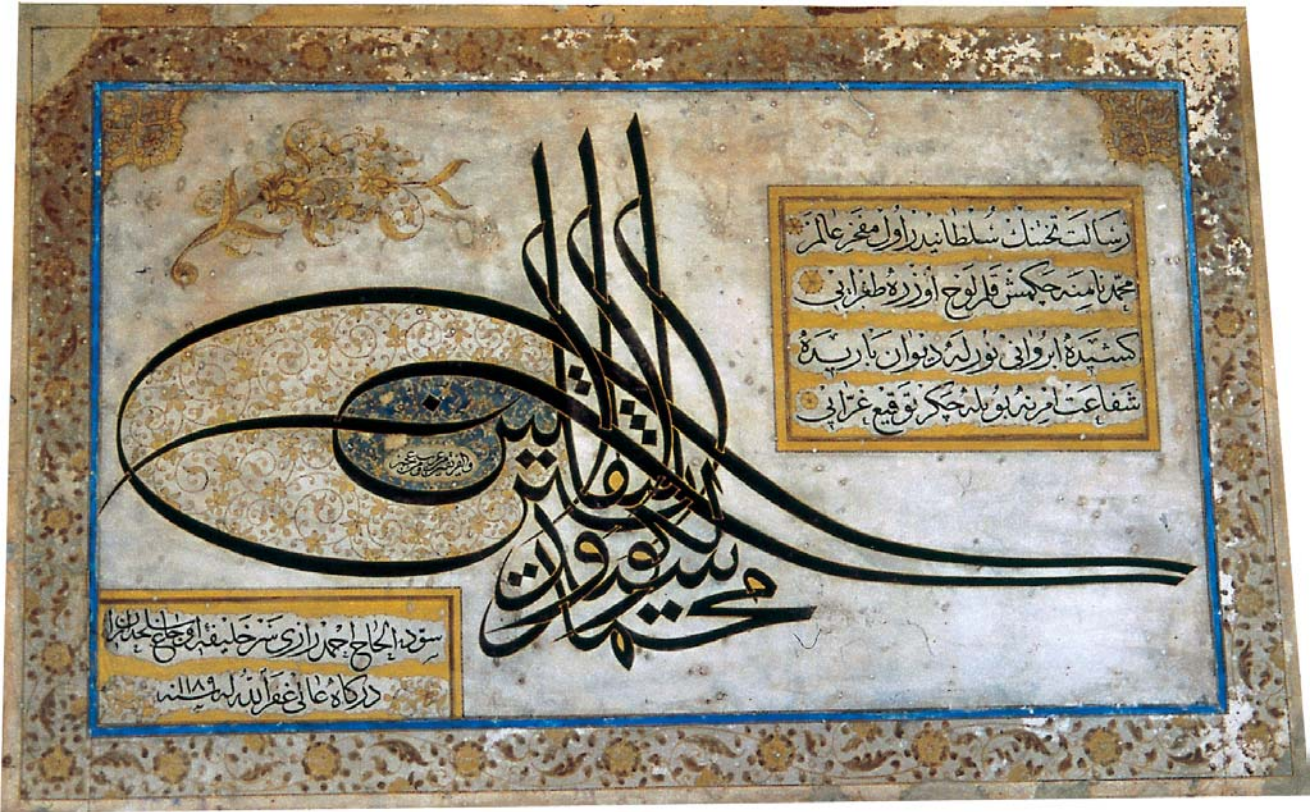 رسالت تختنك سلطانيدر اول مفخر عالمز
محمد نامنه چكمش قلم لوح اوزره طغرايى
كشيدۀ ابروانى نورله ديوان باريده
شفاعت امرينه بويله چكر توقيع غرايى
محمد سيد الكونين والثقلين
والفريقين من عرب ومن عجم
سوده الحاج احمد رازى سر خليفۀ
دركاه عالى غفر الله له سنه ١١٨٩